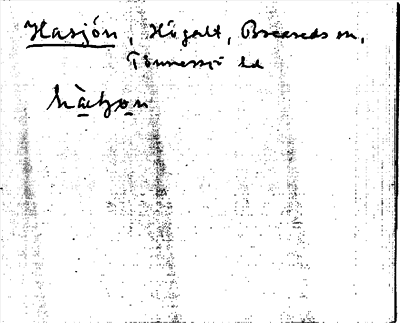 Hasjön, Högalt, Breareds sn,
Tönnersjö hd
hàʃʒon